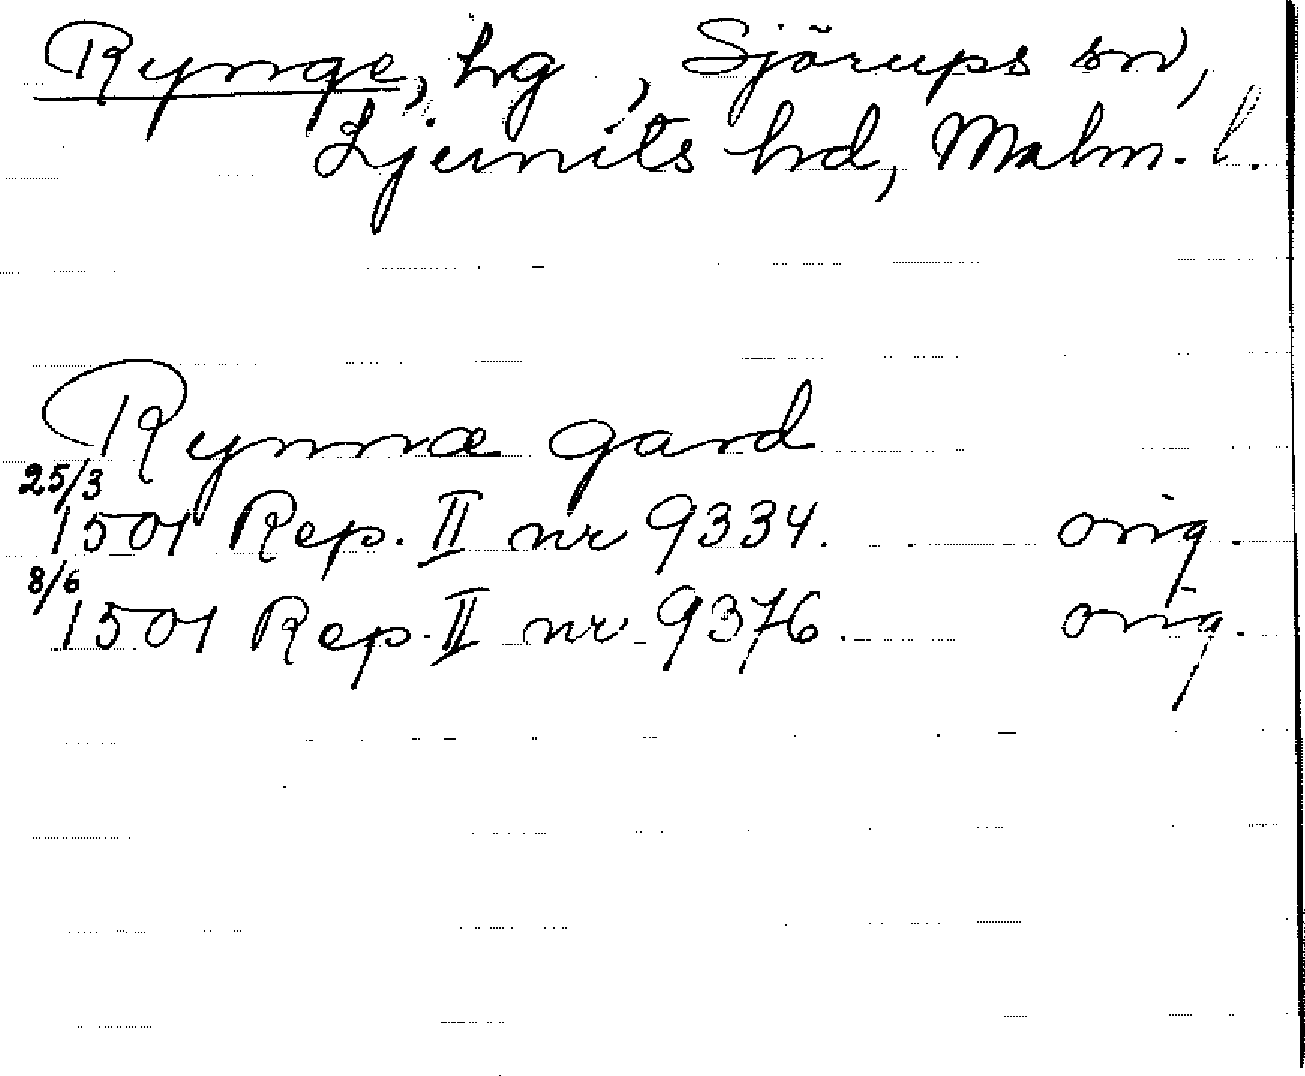 Rynge, hg, Sjörups sn,
Ljunits hd, Malm. l.
Rynnæ gard
25/3
1501 Rep. II nr 9334. orig.
8/6
1501 Rep. II nr 9376. orig.